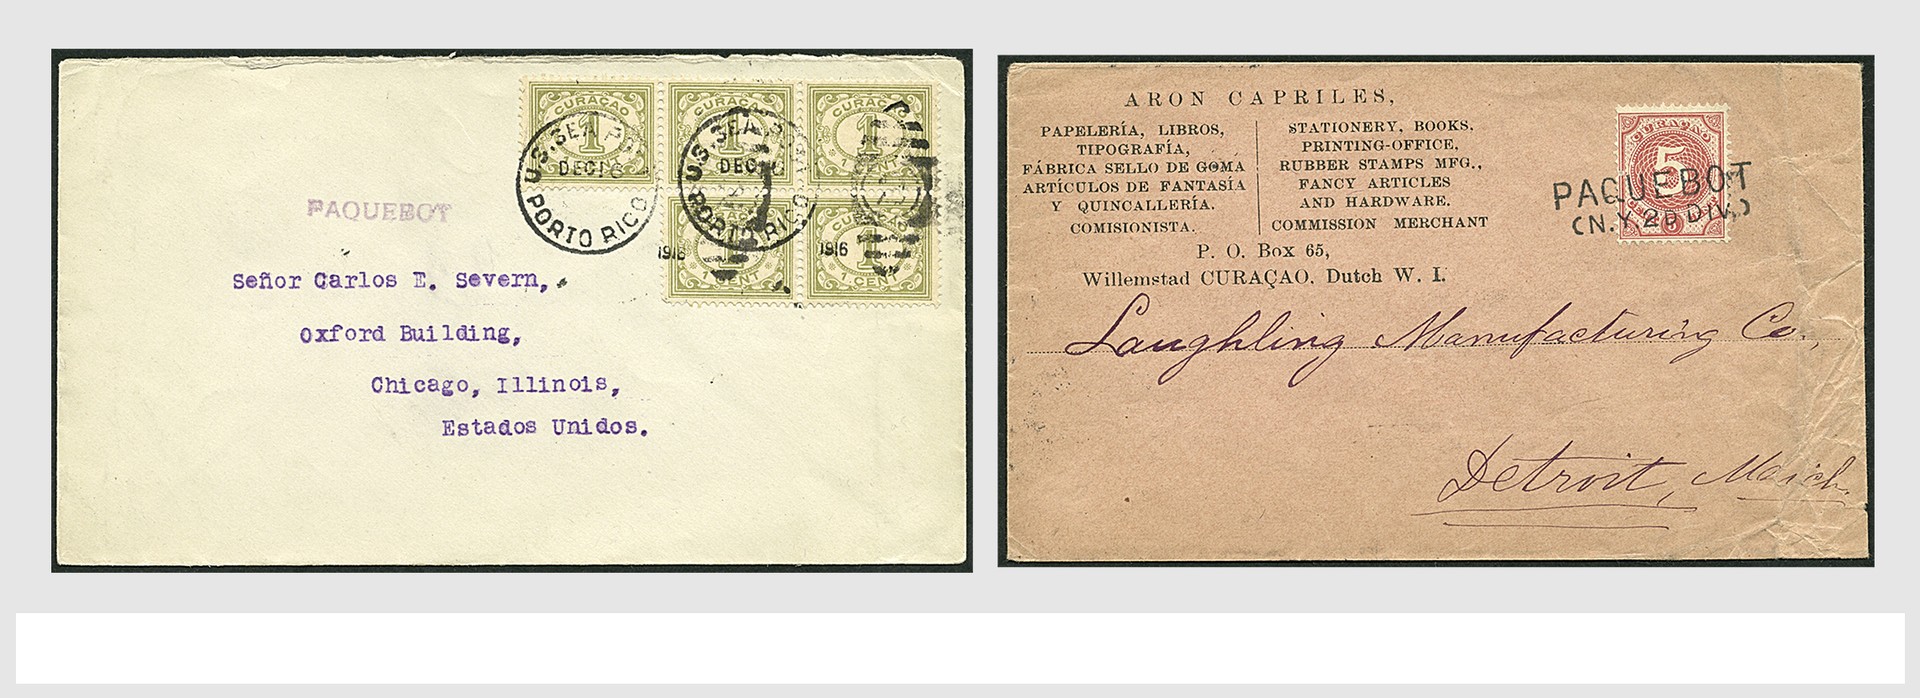 CURAÇAO 1 CENT
CURAÇAO 1 CENT
CURAÇAO 1 CENT
CURAÇAO 1 CENT
CURAÇAO 1 CENT
U.S. SEA P
DEC 16
PORTO RICO
1916
U.S. SEA P
DEC 16
PORTO RICO
1916
PAQUEBOT
Señor Carlos E. Severn,
Oxford Building,
Chicago, Illinois,
Estados Unidos.
ARON CAPRILES,
PAPELERÍA, LIBROS,
TIPOGRAFÍA,
FÁBRICA SELLO DE GOMA
ARTÍCULOS DE FANTASÍA
Y QUINCALLERÍA.
COMISIONISTA.
STATIONERY, BOOKS.
PRINTING-OFFICE,
RUBBER STAMPS MFG.,
FANCY ARTICLES
AND HARDWARE.
COMMISSION MERCHANT
P. O. Box 65,
Willemstad CURAÇAO. Dutch W. I.
CURAÇAO
5
PAQUEBOT
(N.Y. 2D DIV.)
Laughling Manufacturing Co.,
Detroit, Maich.